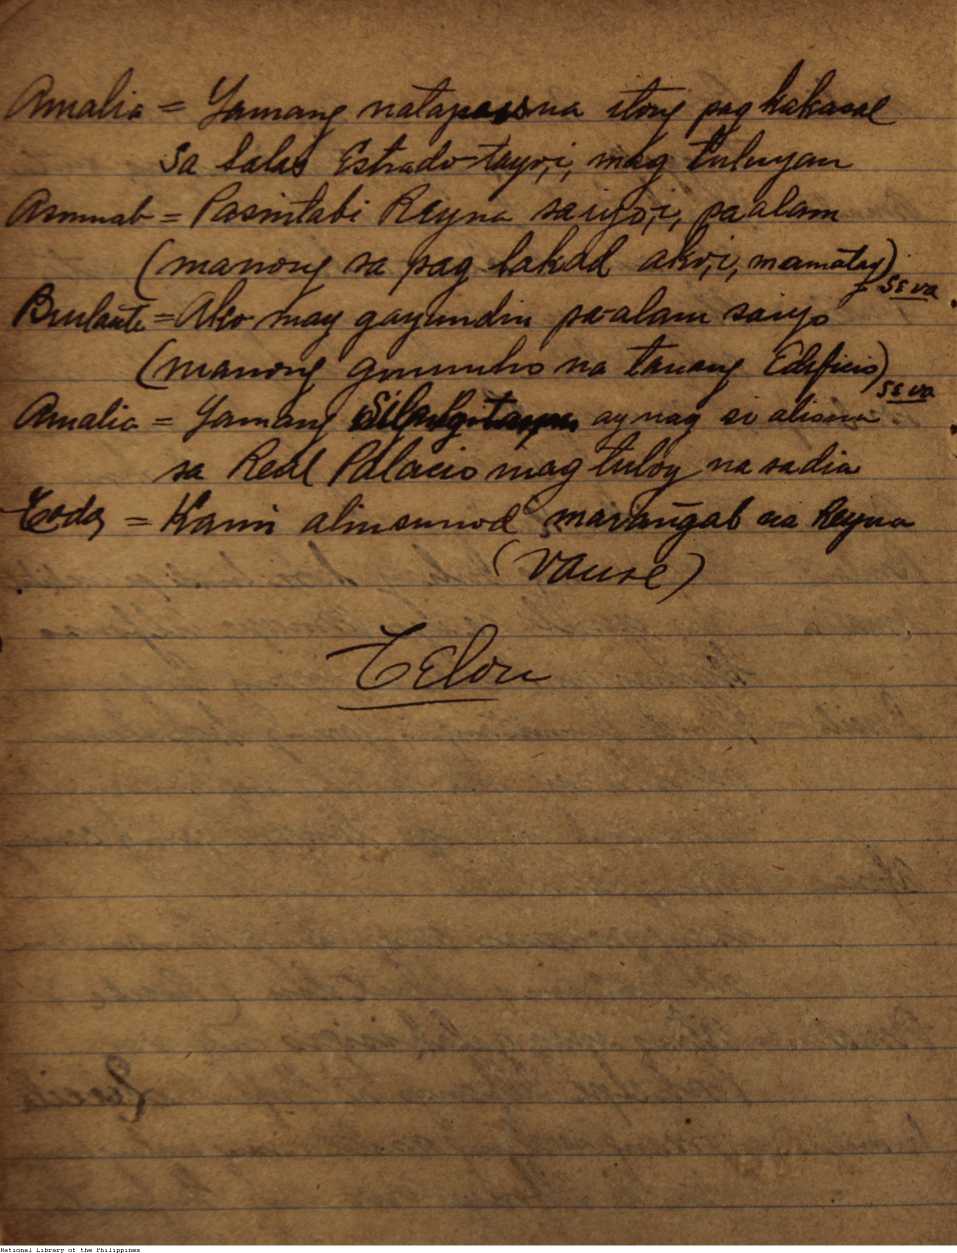 Amalia = Yamang natapos na itong pag kakasal
sa Salas Estrado tayo,i, mag tuluyan
Asmuab = Pasintabi Reyna saiyo,i, paalam
(manong sa pag lakad ako,i, mamatay)
se va
Brulante = Ako may gayundin pa-alam saiyo
(manong gumuho na tanang Edificio)
se va
Amalia = Yamang ay nag si alis na
sa Real Palacio mag tuloy na sadia
Todos = Kami alinsunod marangal na Reyna
(vanse)
Telon
National Library of the Philippines